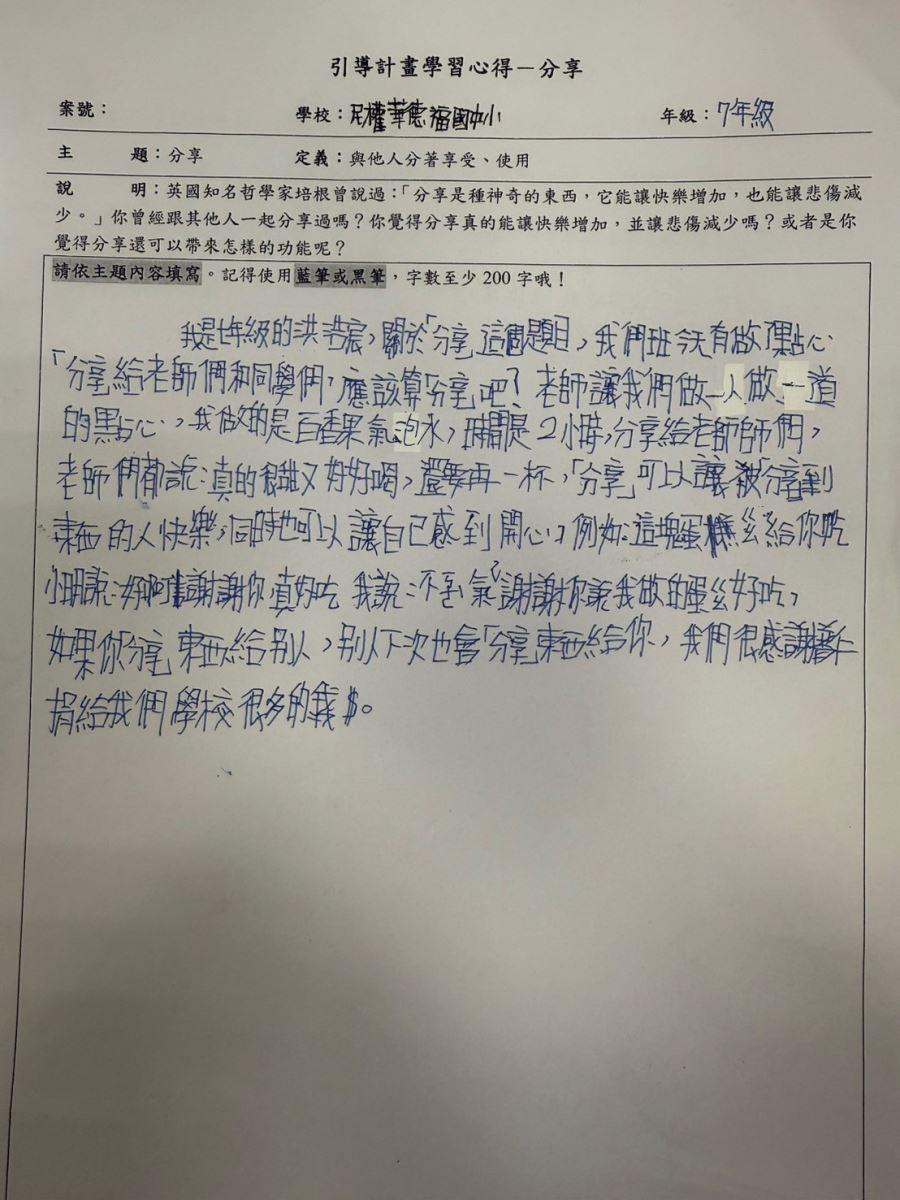 引導計畫學習心得－分享
案號： 學校：民權華德福國中小 年級：7年級
主 題：分享 定義：與他人分著享受、使用
說 明：英國知名哲學家培根曾說過：「分享是種神奇的東西，它能讓快樂增加，也能讓悲傷減
少。」你曾經跟其他人一起分享過嗎？你覺得分享真的能讓快樂增加，並讓悲傷減少嗎？或者是你
覺得分享還可以帶來怎樣的功能呢？
請依主題內容填寫。記得使用藍筆或黑筆，字數至少 200 字哦！
我是七年級的洪宸，關於「分享」這個題目，我們班今天有做「點心
「分享」給老師們和同學們，應該算「分享」吧？老師讓我們做一人做一道
的點心，我做的是百香果氣泡水，時間是2小時，分享給老師師們，
老師們都說：真的很甜又好好喝，還要再一杯，「分享」可以讓被「分享」到
東西的人快樂，同時也可以讓自己感到開心，例如：這塊蛋糕給你吃
小明說：好啊謝謝你真好吃 我說：不客氣謝謝你說我做的蛋糕好吃，
如果你分享」東西給別人，別人下次也會「分享」東西給你，我們很感謝
捐給我們學校很多的錢$。